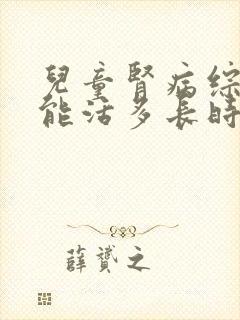 兒童腎病綜
能活多長時
薛贇之